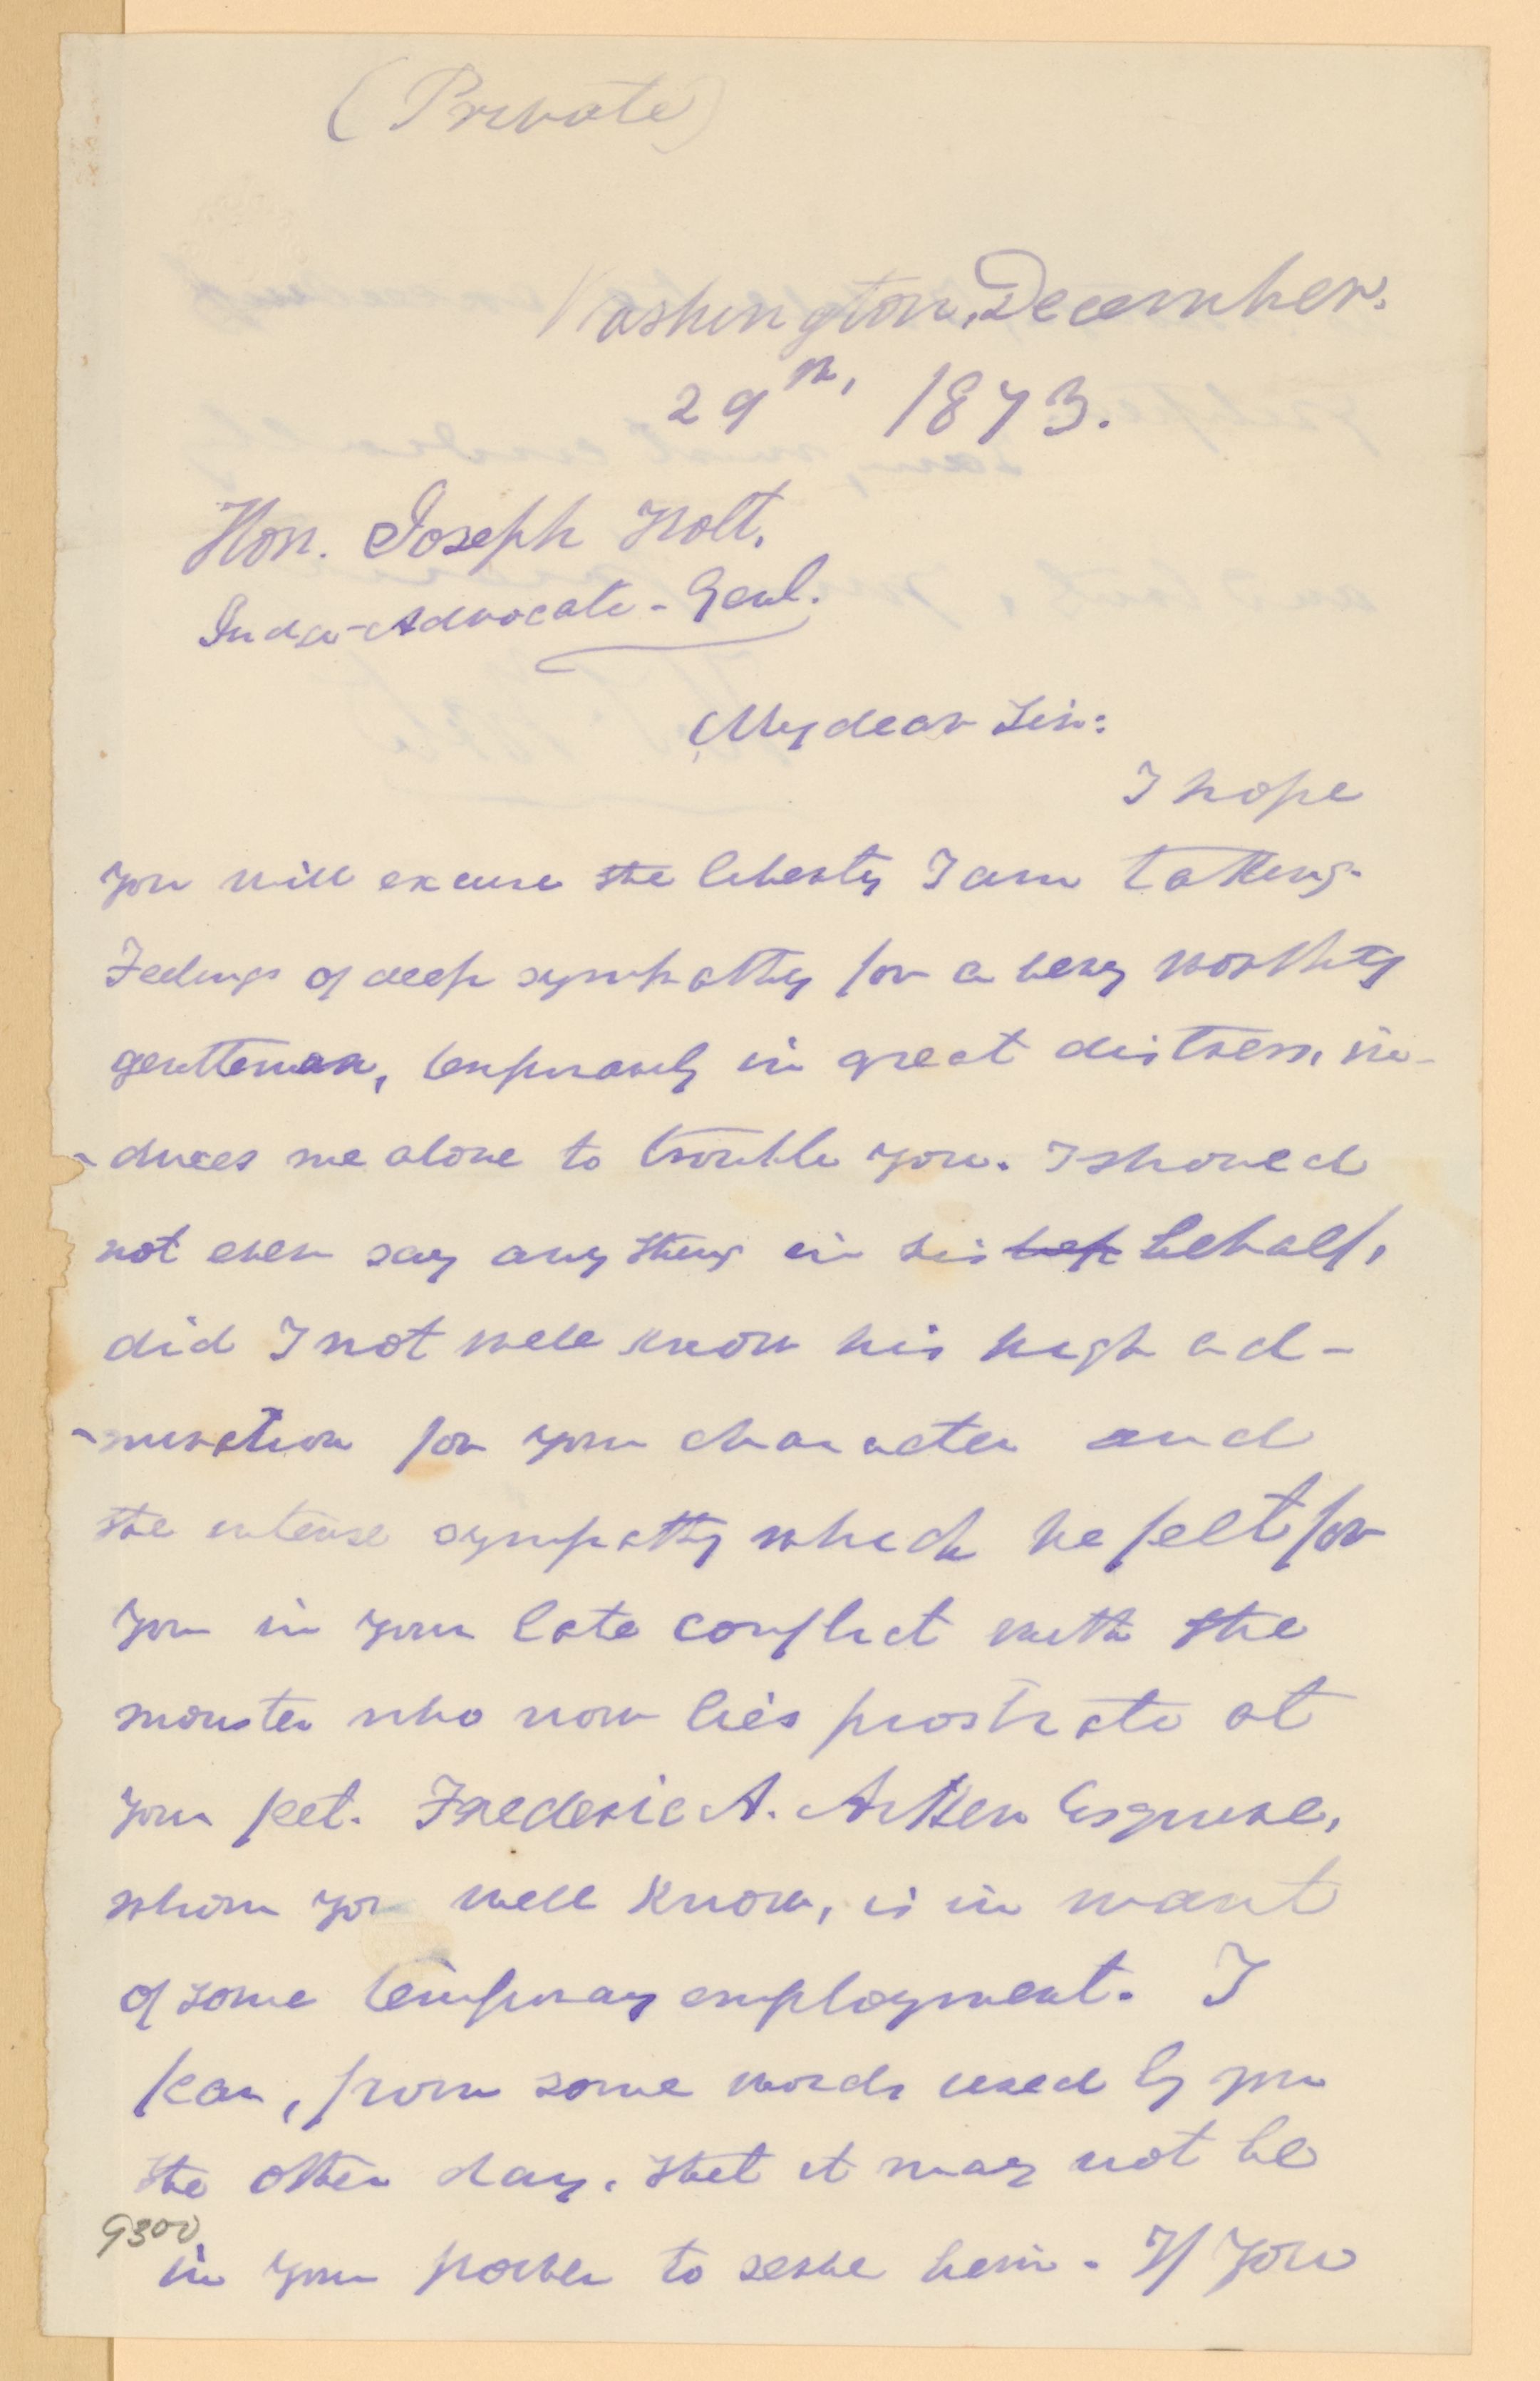 (Private)
Washington, December.
29th, 1873.
Hon. Joseph Holt.
Judge-Advocate-Genl.
My dear Sir:
I hope
you will excuse the liberty I am taking.
Feelings of deep sympathy for a very worthy
gentleman, temporarily in great distress, in-
-duces me alone to trouble you. I should
not even say any thing in his beh behalf,
did I not well know his high ad-
-miration for your character and
the intense sympathy which he felt for
you in your late conflict with the
monster who now lies prostrate at
your feet. Frederic A. Aiken Esquire,
whom you well know, is in want
of some temporary employment. I
fear, from some words used by you
the other day, that it may not be
9300
in your power to serve him. If you